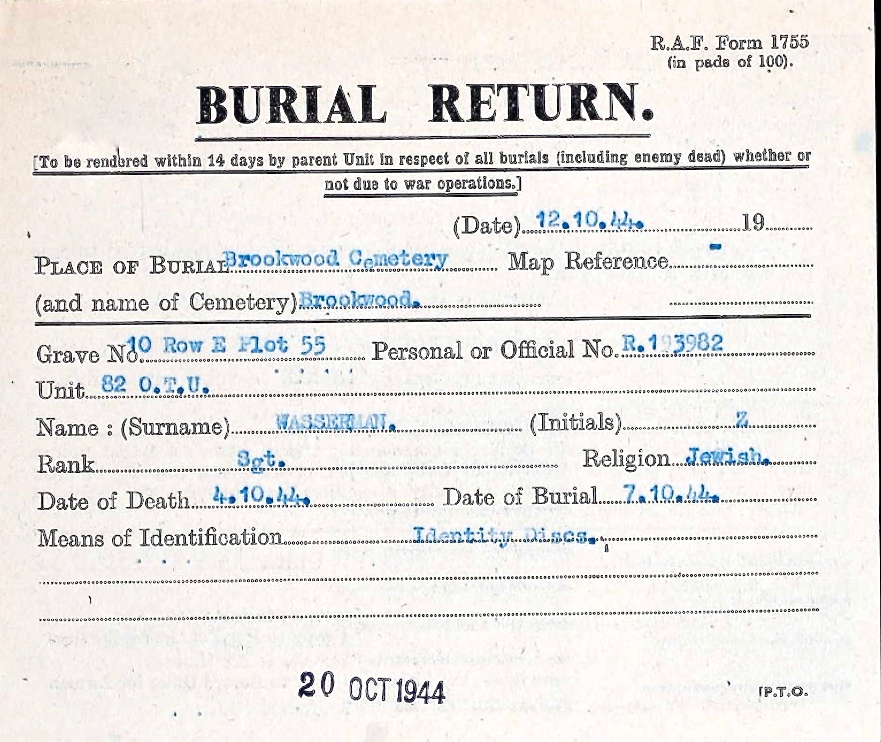 R.A.F. Form 1755
(in pads of 100).
BURIAL RETURN.
[To be rendered within 14 days by parent Unit in respect of all burials (including enemy dead) whether or
not due to war operations.]
(Date) 12.10.44. 19
PLACE OF BURIAL Brookwood Cemetery Map Reference -
(and name of Cemetery) Brookwood.
Grave No. 10 Row E Plot 55 Personal or Official No. R.193982
Unit 82 O.T.U.
Name : (Surname) WASSERMAN. (Initials) Z
Rank Sgt. Religion Jewish.
Date of Death 4.10.44. Date of Burial 7.10.44.
Means of Identification Identity Discs.
20 OCT 1944
[P.T.O.